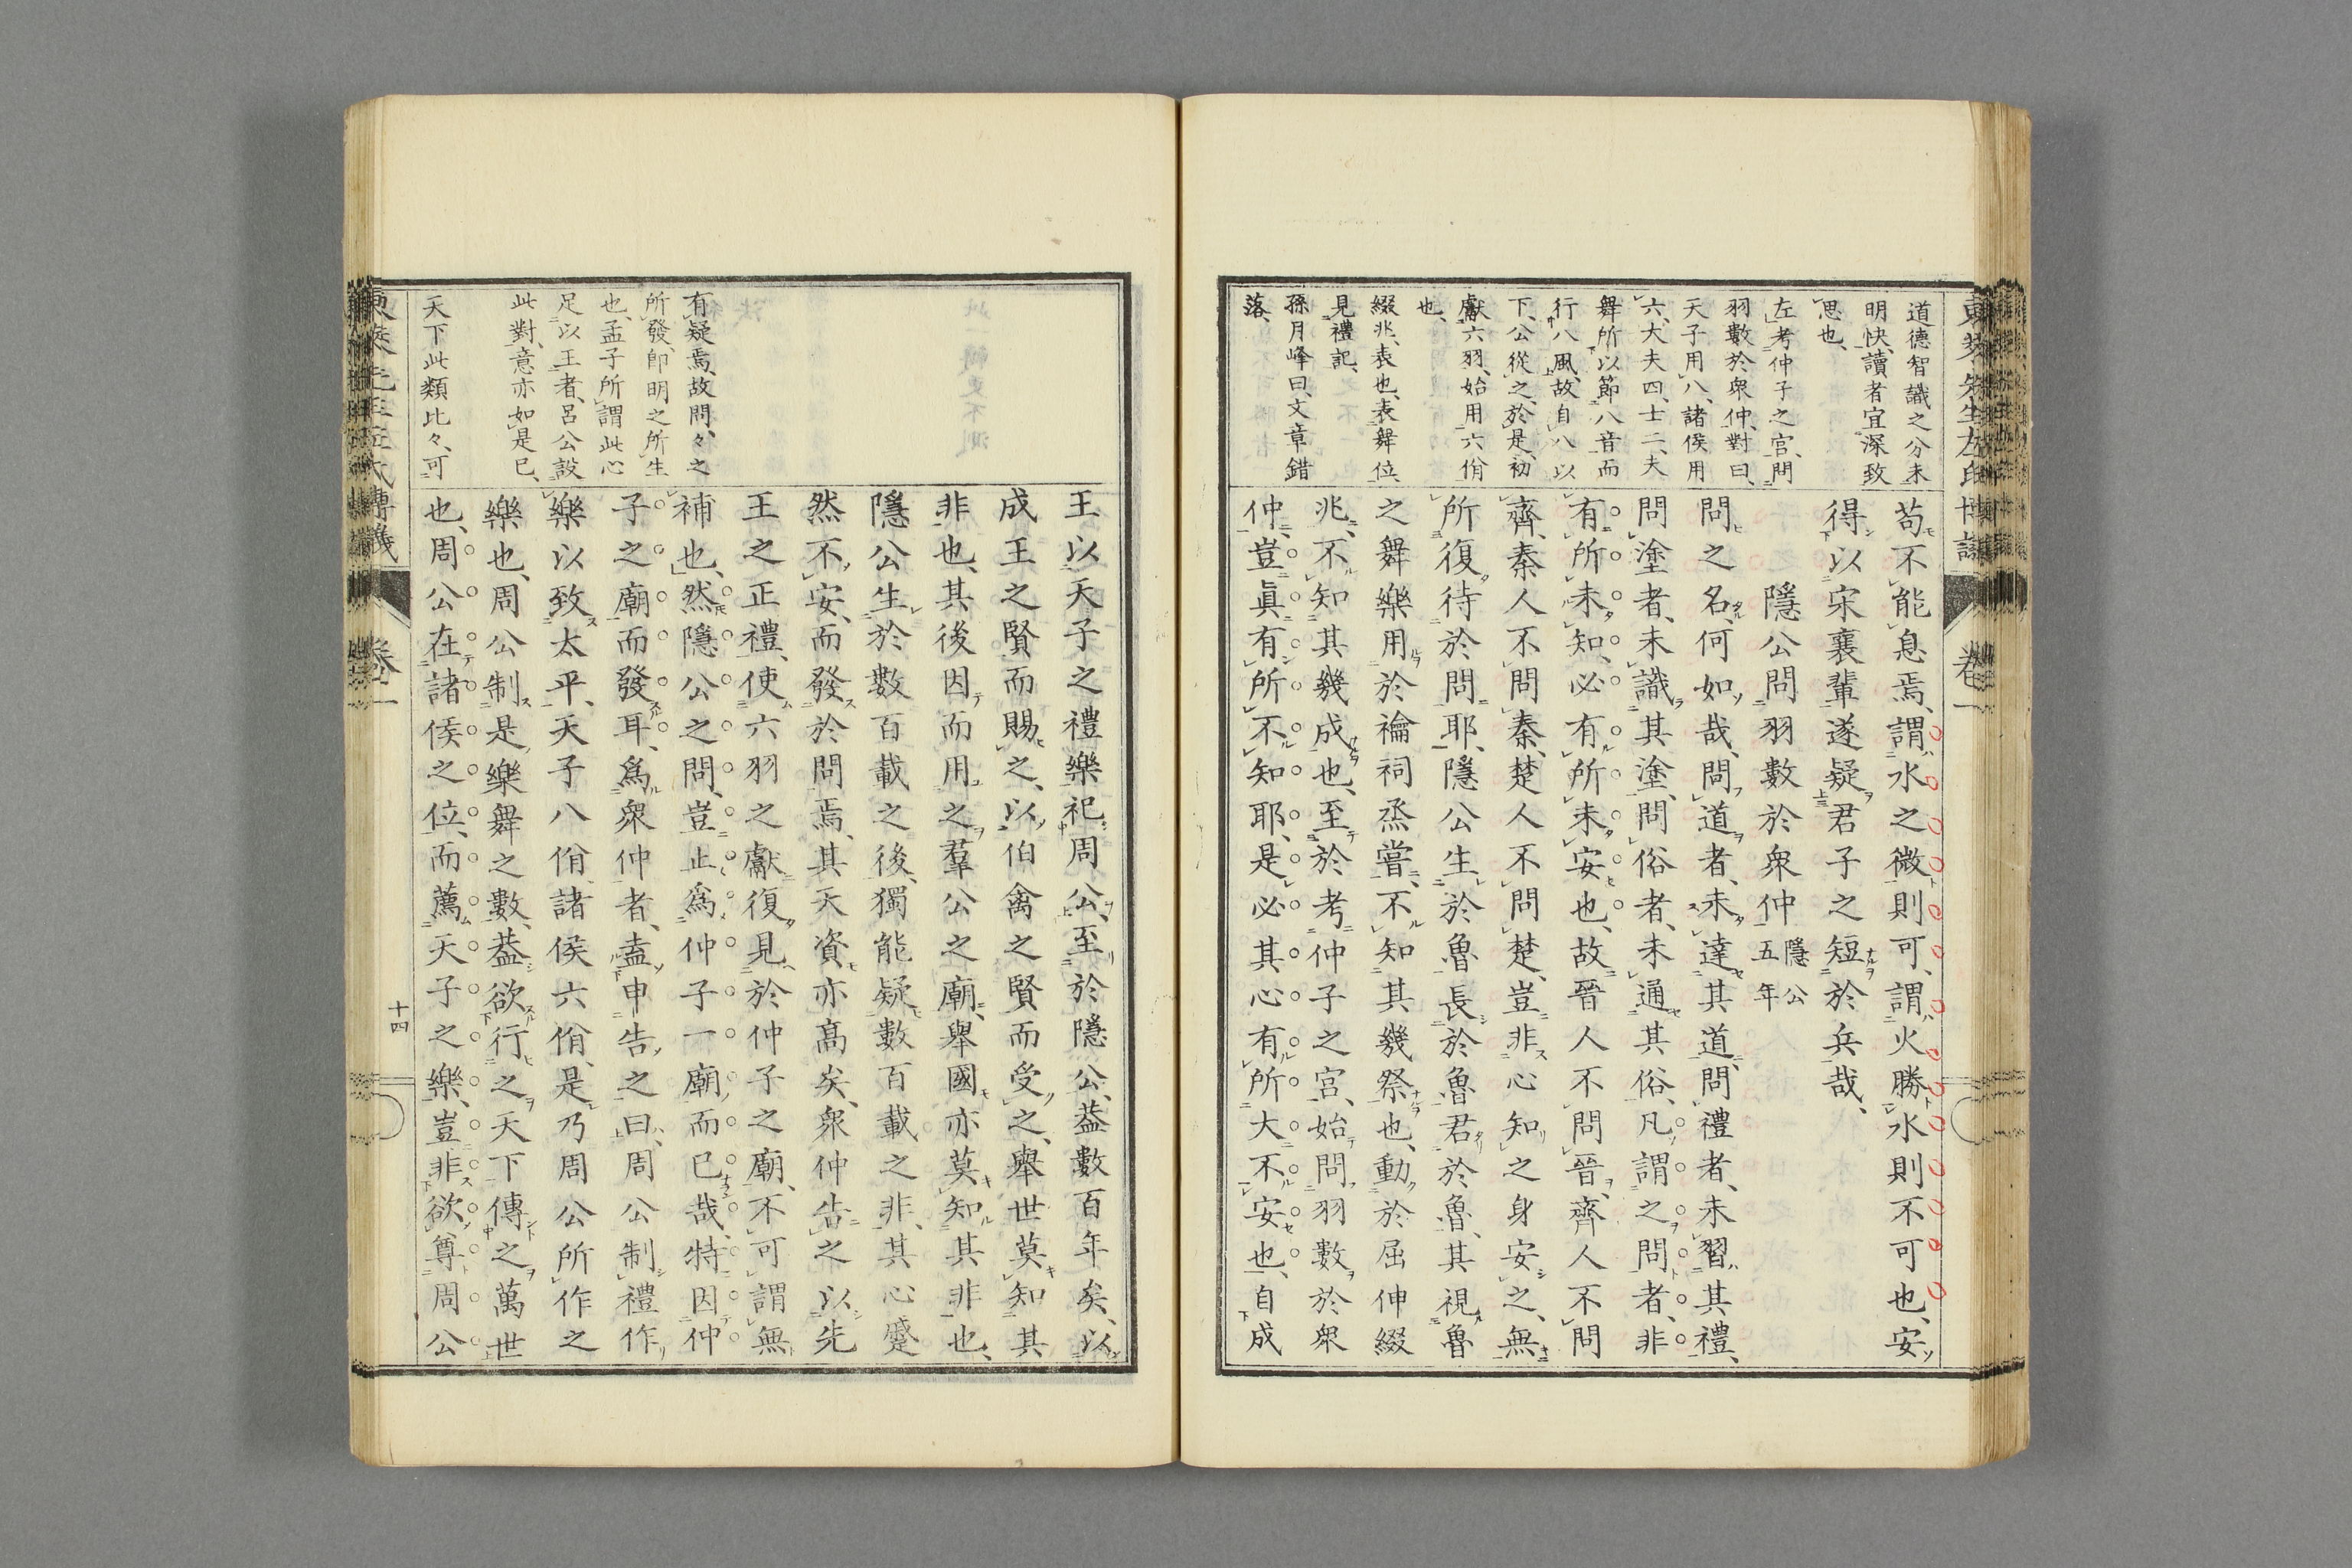 道德智識之分未
明快、讀者宜深致
思也、
左考仲子之宮、問
羽數於衆仲、對曰、
天子用八、諸侯用
六、大夫四、士二、夫
舞所以節八音而
行八風、故自八以
下、公從之、於是、初
獻六羽、始用六佾
也、
綴兆、表也、表舞位
見禮記、
孫月峰曰、文章錯
落
苟不能息焉、謂水之微則可、謂火勝水則不可也、安
得以宋襄輩遂疑君子之短於兵哉、
隱公問羽數於衆仲 隱公五年
問之名、何如哉、問道者、未達其道、問禮者、未習其禮、
問塗者、未識其塗、問俗者、未通其俗、凡謂之問者、非
有所未知、必有所未安也、故晉人不問晉、齊人不問
齊、秦人不問秦、楚人不問楚、豈非心知之身安之、無
所復待於問耶、隱公生於魯長於魯君於魯、其視魯
之舞樂用於禴祠烝嘗、不知其幾祭也、動於屈伸綴
兆、不知其幾成也、至於考仲子之宮、始問羽數於衆
仲、豈眞有所不知耶、是必其心有所大不安也、自成
卷一
王以天子之禮樂祀周公、至於隱公、蓋數百年矣、以
成王之賢而賜之、以伯禽之賢而受之、舉世莫知其
非也、其後因而用之羣公之廟、舉國亦莫知其非也、
隱公生於數百載之後、獨能疑數百載之非、其心蹙
然不安、而發於問焉、其天資亦高矣、衆仲告之以先
王之正禮、使六羽之獻復見於仲子之廟、不可謂無
補也、然隱公之問、豈止爲仲子一廟而已哉、特因仲
子之廟而發耳、爲衆仲者、盍申告之曰、周公制禮作
樂以致太平、天子八佾諸侯六佾、是乃周公所作之
樂也、周公制是樂舞之數、蓋欲行之天下傳之萬世
也、周公在諸侯之位、而薦天子之樂、豈非欲尊周公
有疑焉、故問、々之
所發、卽明之所生
也、孟子所謂此心
足以王者、呂公設
此對、意亦如是已、
天下此類比々、可
卷一
十四